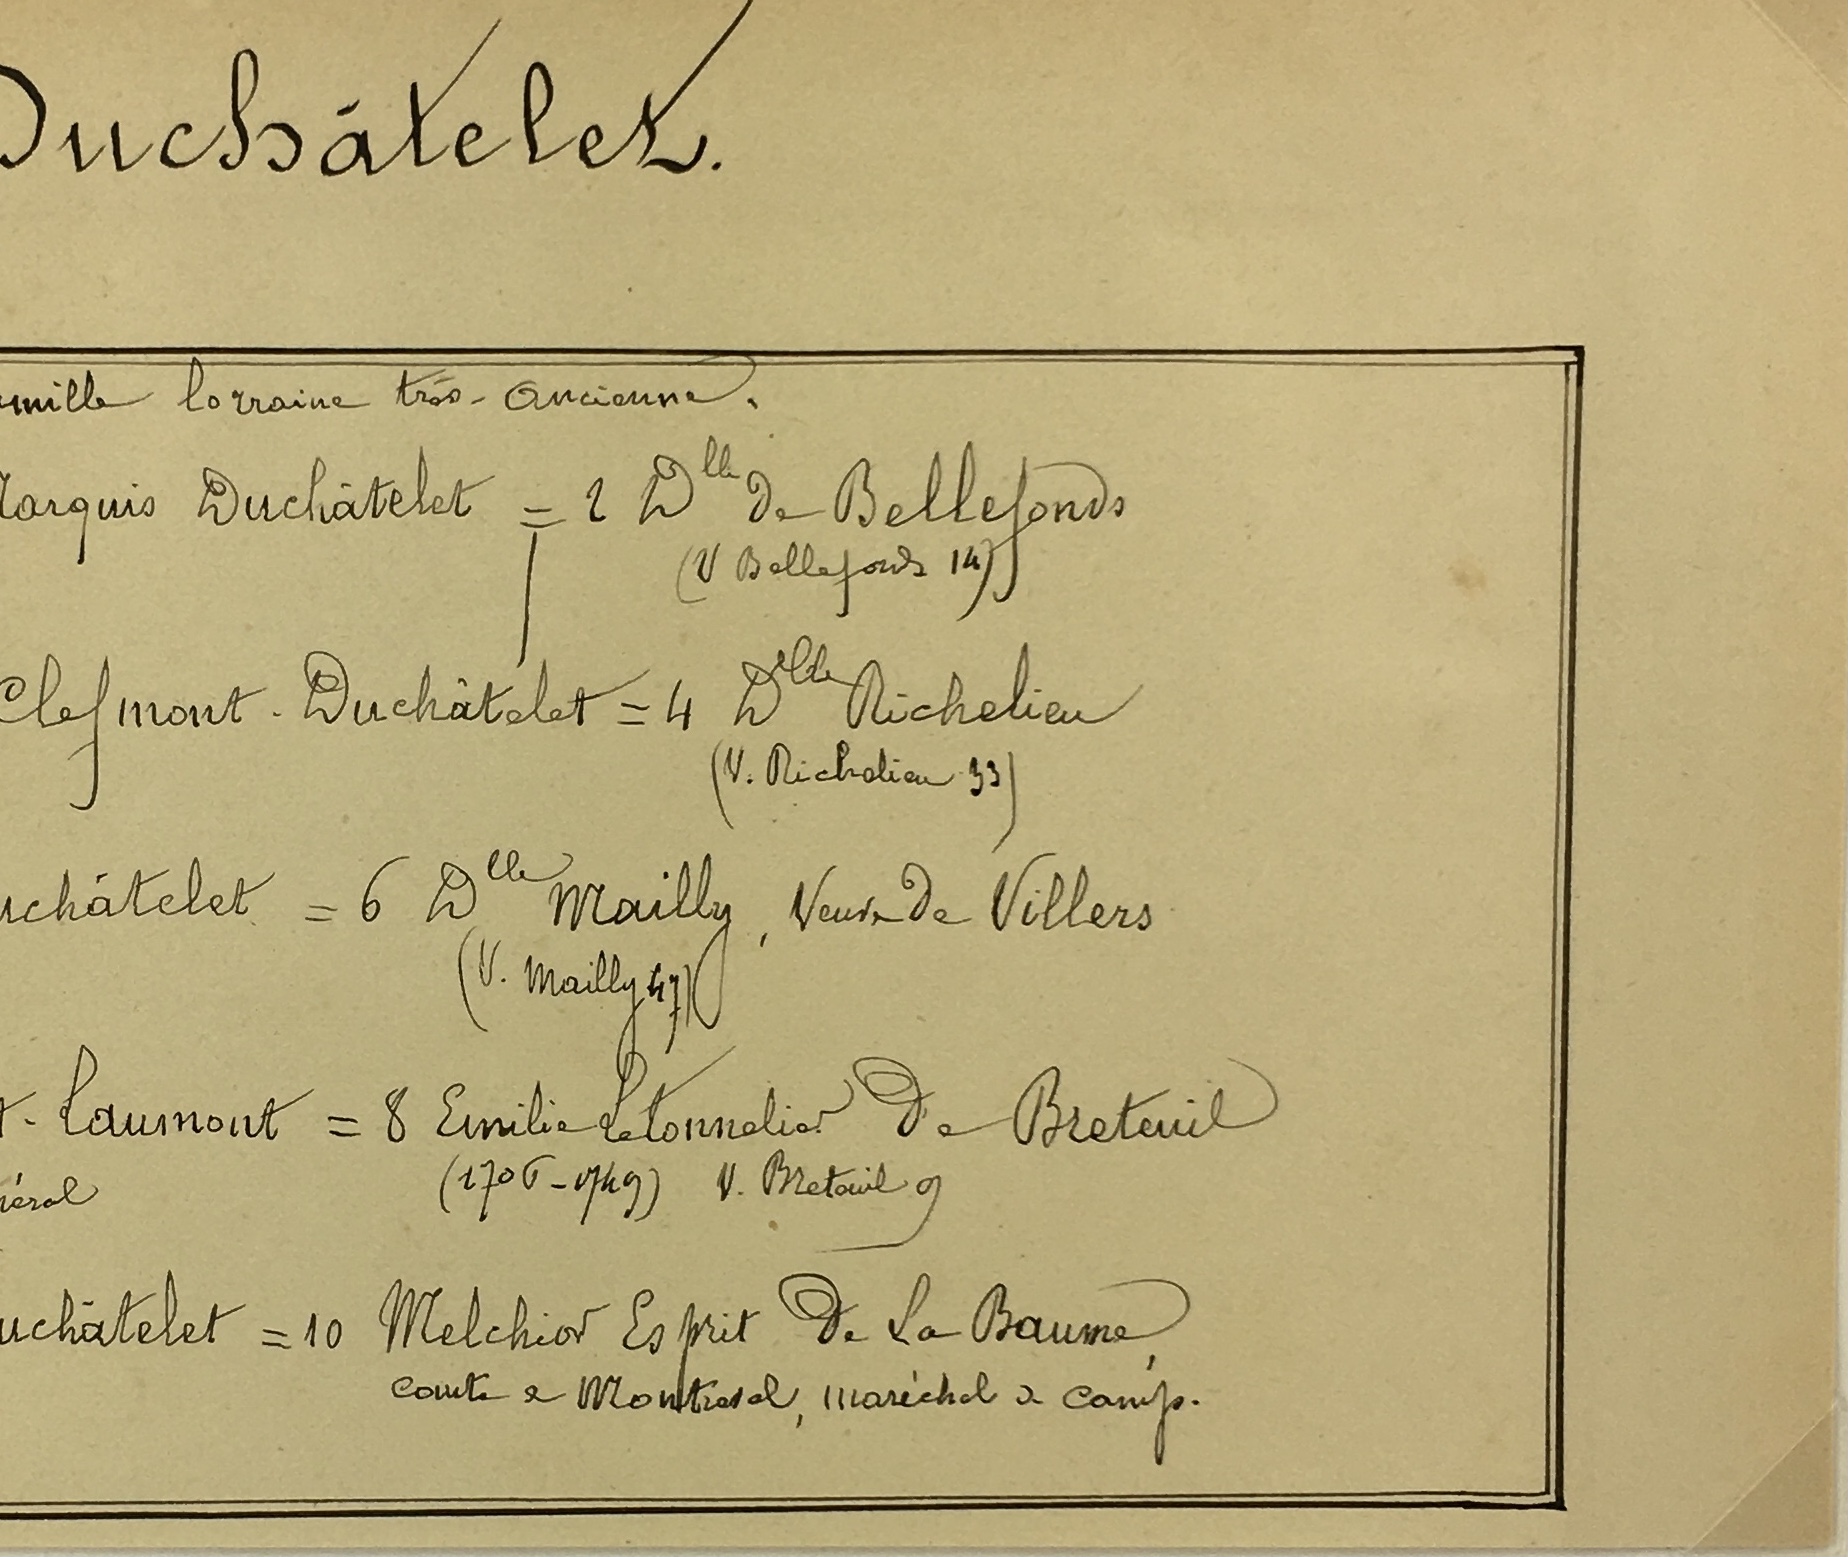 Duchâtelet.
famille lorraine très-ancienne.
Marquis Duchâtelet = 2 Dlle de Bellefonds
(V Bellefonds 14)
Clefmont-Duchâtelet = 4 Dlle Richelieu
(V. Richelieu 33)
uchâtelet = 6 Dlle Mailly, Veuve de Villers
(V. Mailly 47)
t-Laumont = 8 Emilie Letonnelier de Breteuil
néral (1706-1749) V. Breteuil 9
uchâtelet = 10 Melchior Esprit de La Baume,
comte de Montrevel, maréchal de camp.